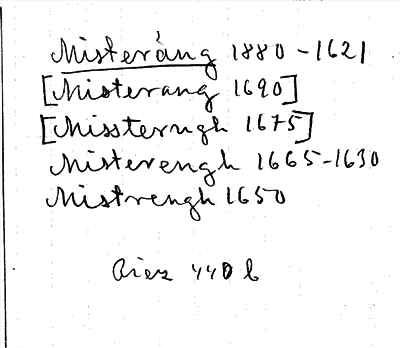 Misteräng 1880-1621
[Misterang 1690]
[Missterngh 1675]
Misterengh 1665-1630
Mistrengh 1650
440 b